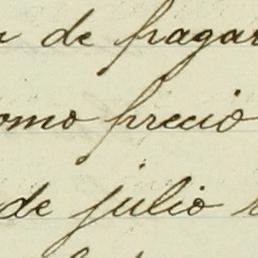 de pagar
omo precio
de julio